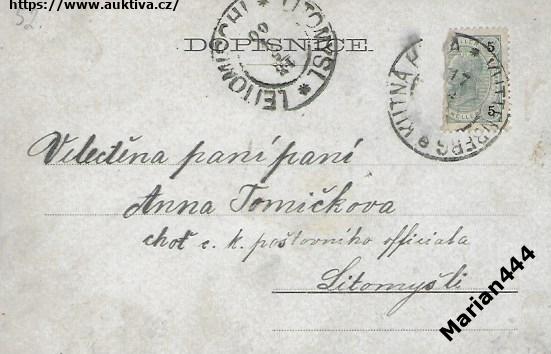 https://www.auktiva.cz/
52.
DOPISNICE.
LEITOMISCHL * LITOMYŠL *
KUTNÁ HORA * KUTTENBERG *
5
5
Velectěna paní paní
Anna Tomíčkova
choť c. k. poštovního officiala
Litomyšli
Marian444